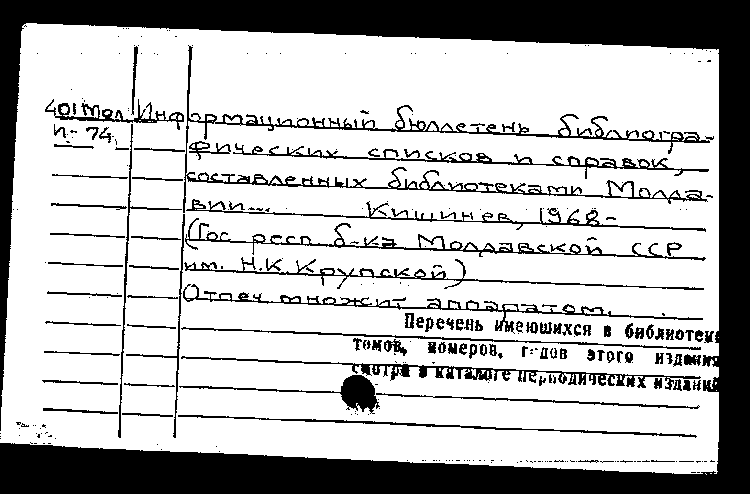 401 Мол Информационный бюллетень библиогра-
И-74 фических списков и справок,
составленных библиотеками Молда-
вии... Кишинев, 1968-
(Гос респ б-ка Молдавской ССР
им. Н.К. Крупской)
Отпеч множит аппаратом.
Перечень имеюшихся в библиотеке
томов, номеров, годов этого издания
смотри в каталоге периодических изданий